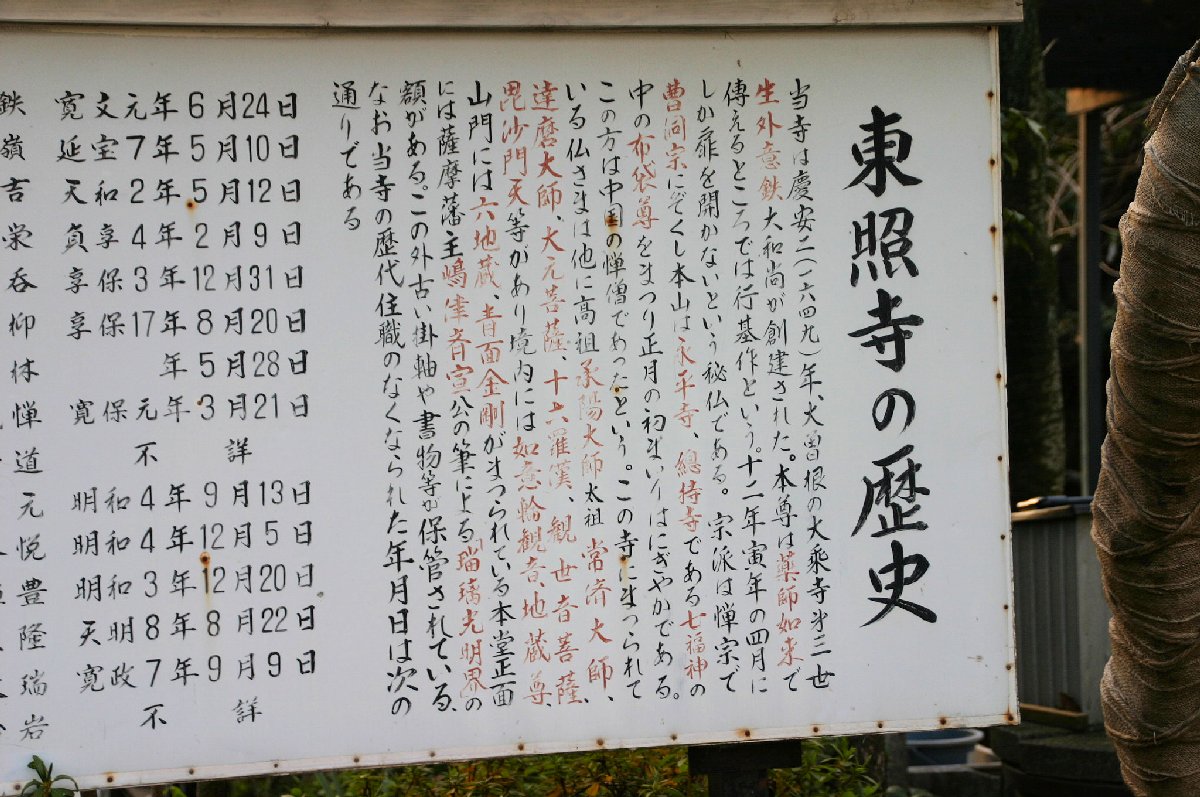 東照寺の歴史
当寺は慶安二(一六四九)年、大曽根の大乗寺㐧三世
生外意鉄大和尚が創建された。本尊は薬師如来で
傳えるところでは行基作という。十二年寅年の四月に
しか扉を開かないという秘仏である。宗派は惮宗で
曹洞宗にぞくし本山は永平寺、總持寺である七福神の
中の布袋尊をまつり正月の初まいりはにぎやかである。
この方は中国の惮僧であったという。この寺にまつられて
いる仏さまは他に高祖承陽大師太祖常済大師、
達磨大師、大元菩薩、十六羅漢、観世音菩薩、
毘沙門天等があり境内には如意輪観音、地蔵尊、
山門には六地蔵、青面金剛がまつられている本堂正面
には薩摩藩主嶋津斉宣公の筆による瑠璃光明界の
額がある。この外古い掛軸や書物等が保管されている、
なお当寺の歴代住職のなくなられた年月日は次の
通りである
鉄 寛文元年6月24日
嶺 延宝7年5月10日
吉 天和2年5月12日
栄 貞享4年2月9日
呑 享保3年12月31日
柳 享保17年8月20日
休 年5月28日
惮 寛保元年3月21日
道 不詳
元 明和4年9月13日
悦 明和4年12月5日
豊 明和3年12月20日
隆 天明8年8月22日
瑞 寛政7年9月9日
岩 不詳